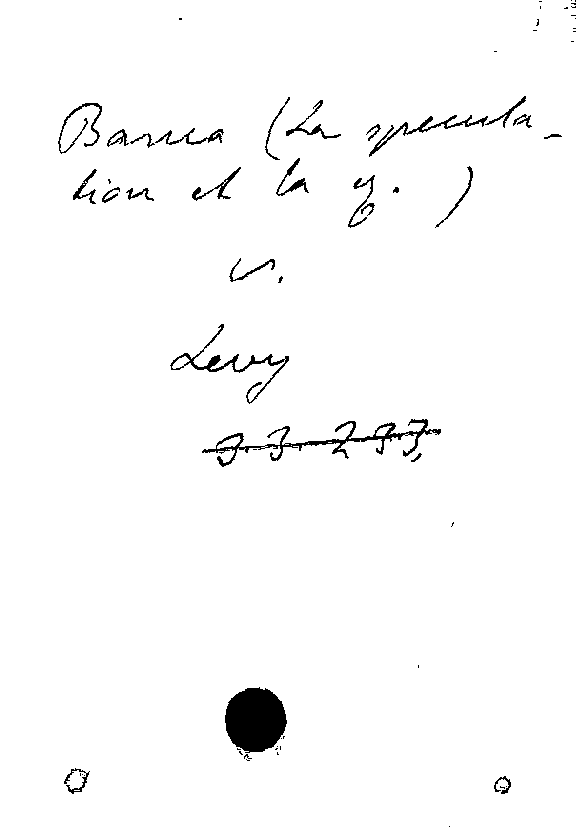 Banca (La specula-
tion et la g. )
v.
Levy
3. 3. 233,